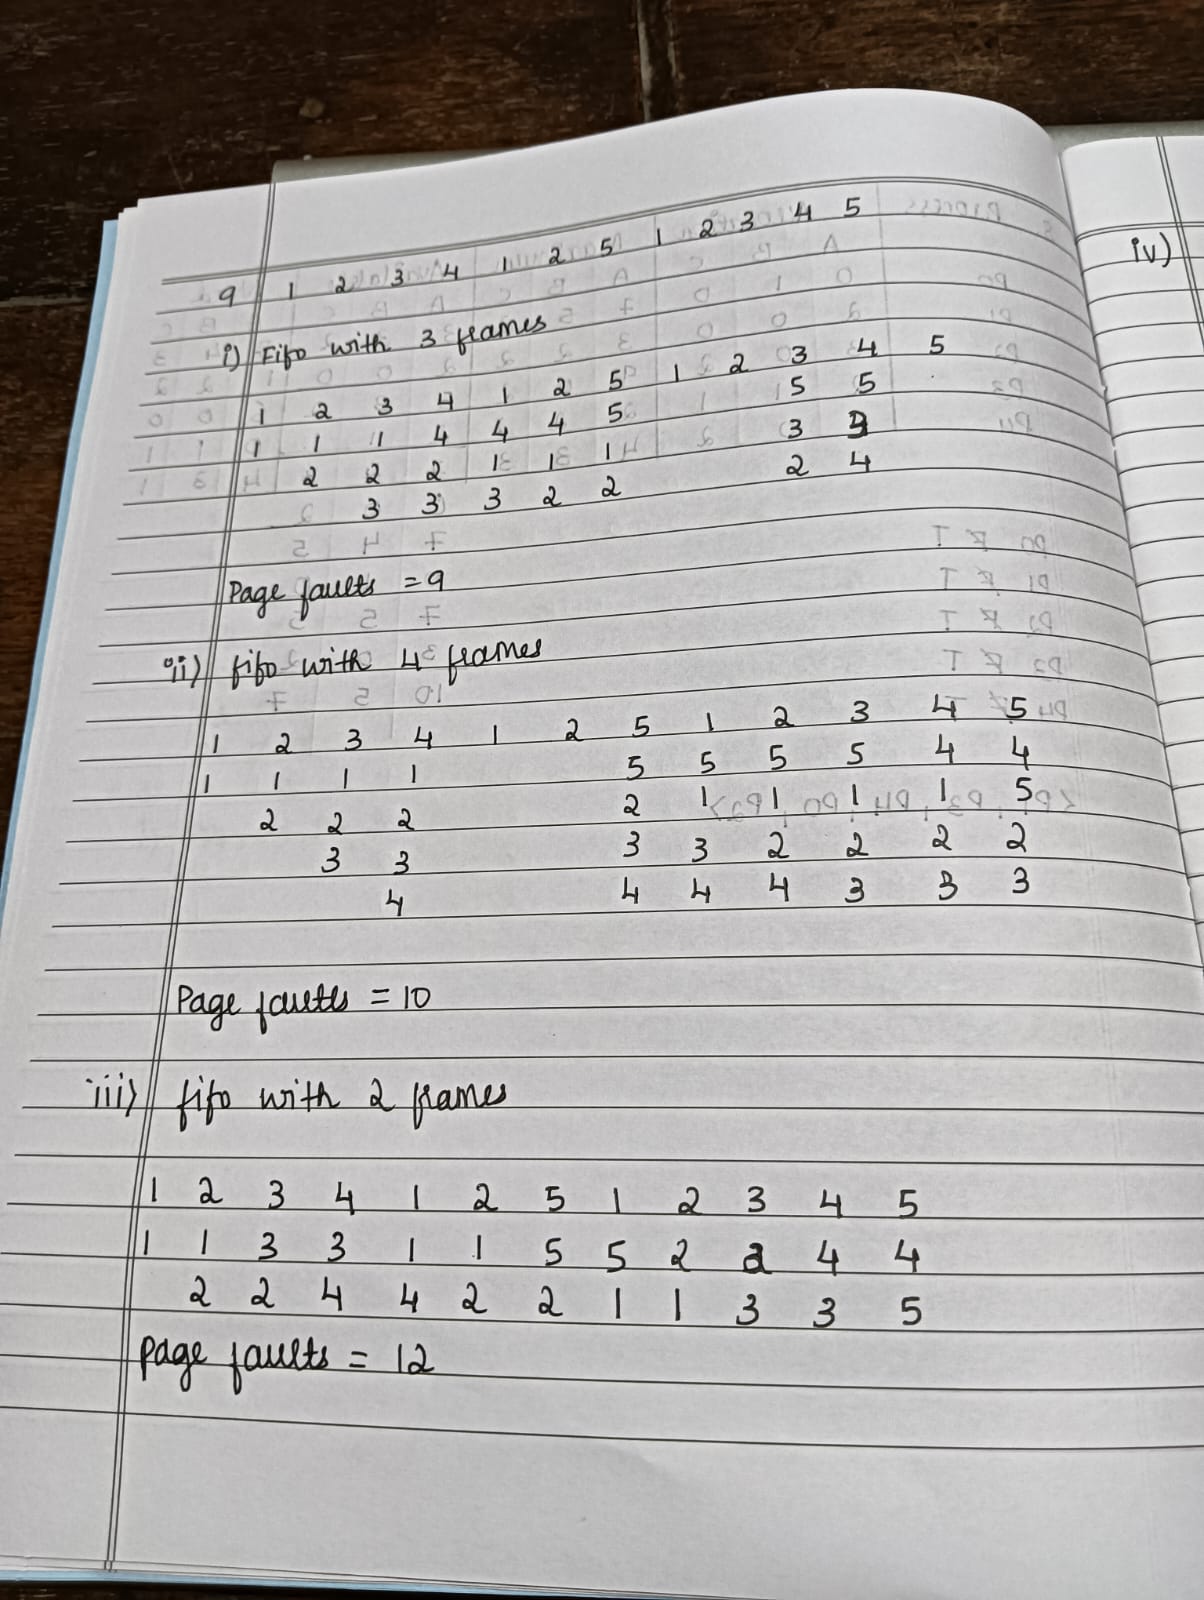 9 1 2 3 4 1 2 5 1 2 3 4 5
i) Fifo with 3 frames
1 2 3 4 1 2 5 1 2 3 4 5
1 1 1 4 4 4 5 5 5
2 2 2 1 1 1 3 3
3 3 3 2 2 2 4
Page faults = 9
ii) fifo with 4 frames
1 2 3 4 1 2 5 1 2 3 4 5
1 1 1 1 5 5 5 5 4 4
2 2 2 2 1 1 1 1 5
3 3 3 3 2 2 2 2
4 4 4 4 3 3 3
Page faults = 10
iii) fifo with 2 frames
1 2 3 4 1 2 5 1 2 3 4 5
1 1 3 3 1 1 5 5 2 2 4 4
2 2 4 4 2 2 1 1 3 3 5
page faults = 12
iv)